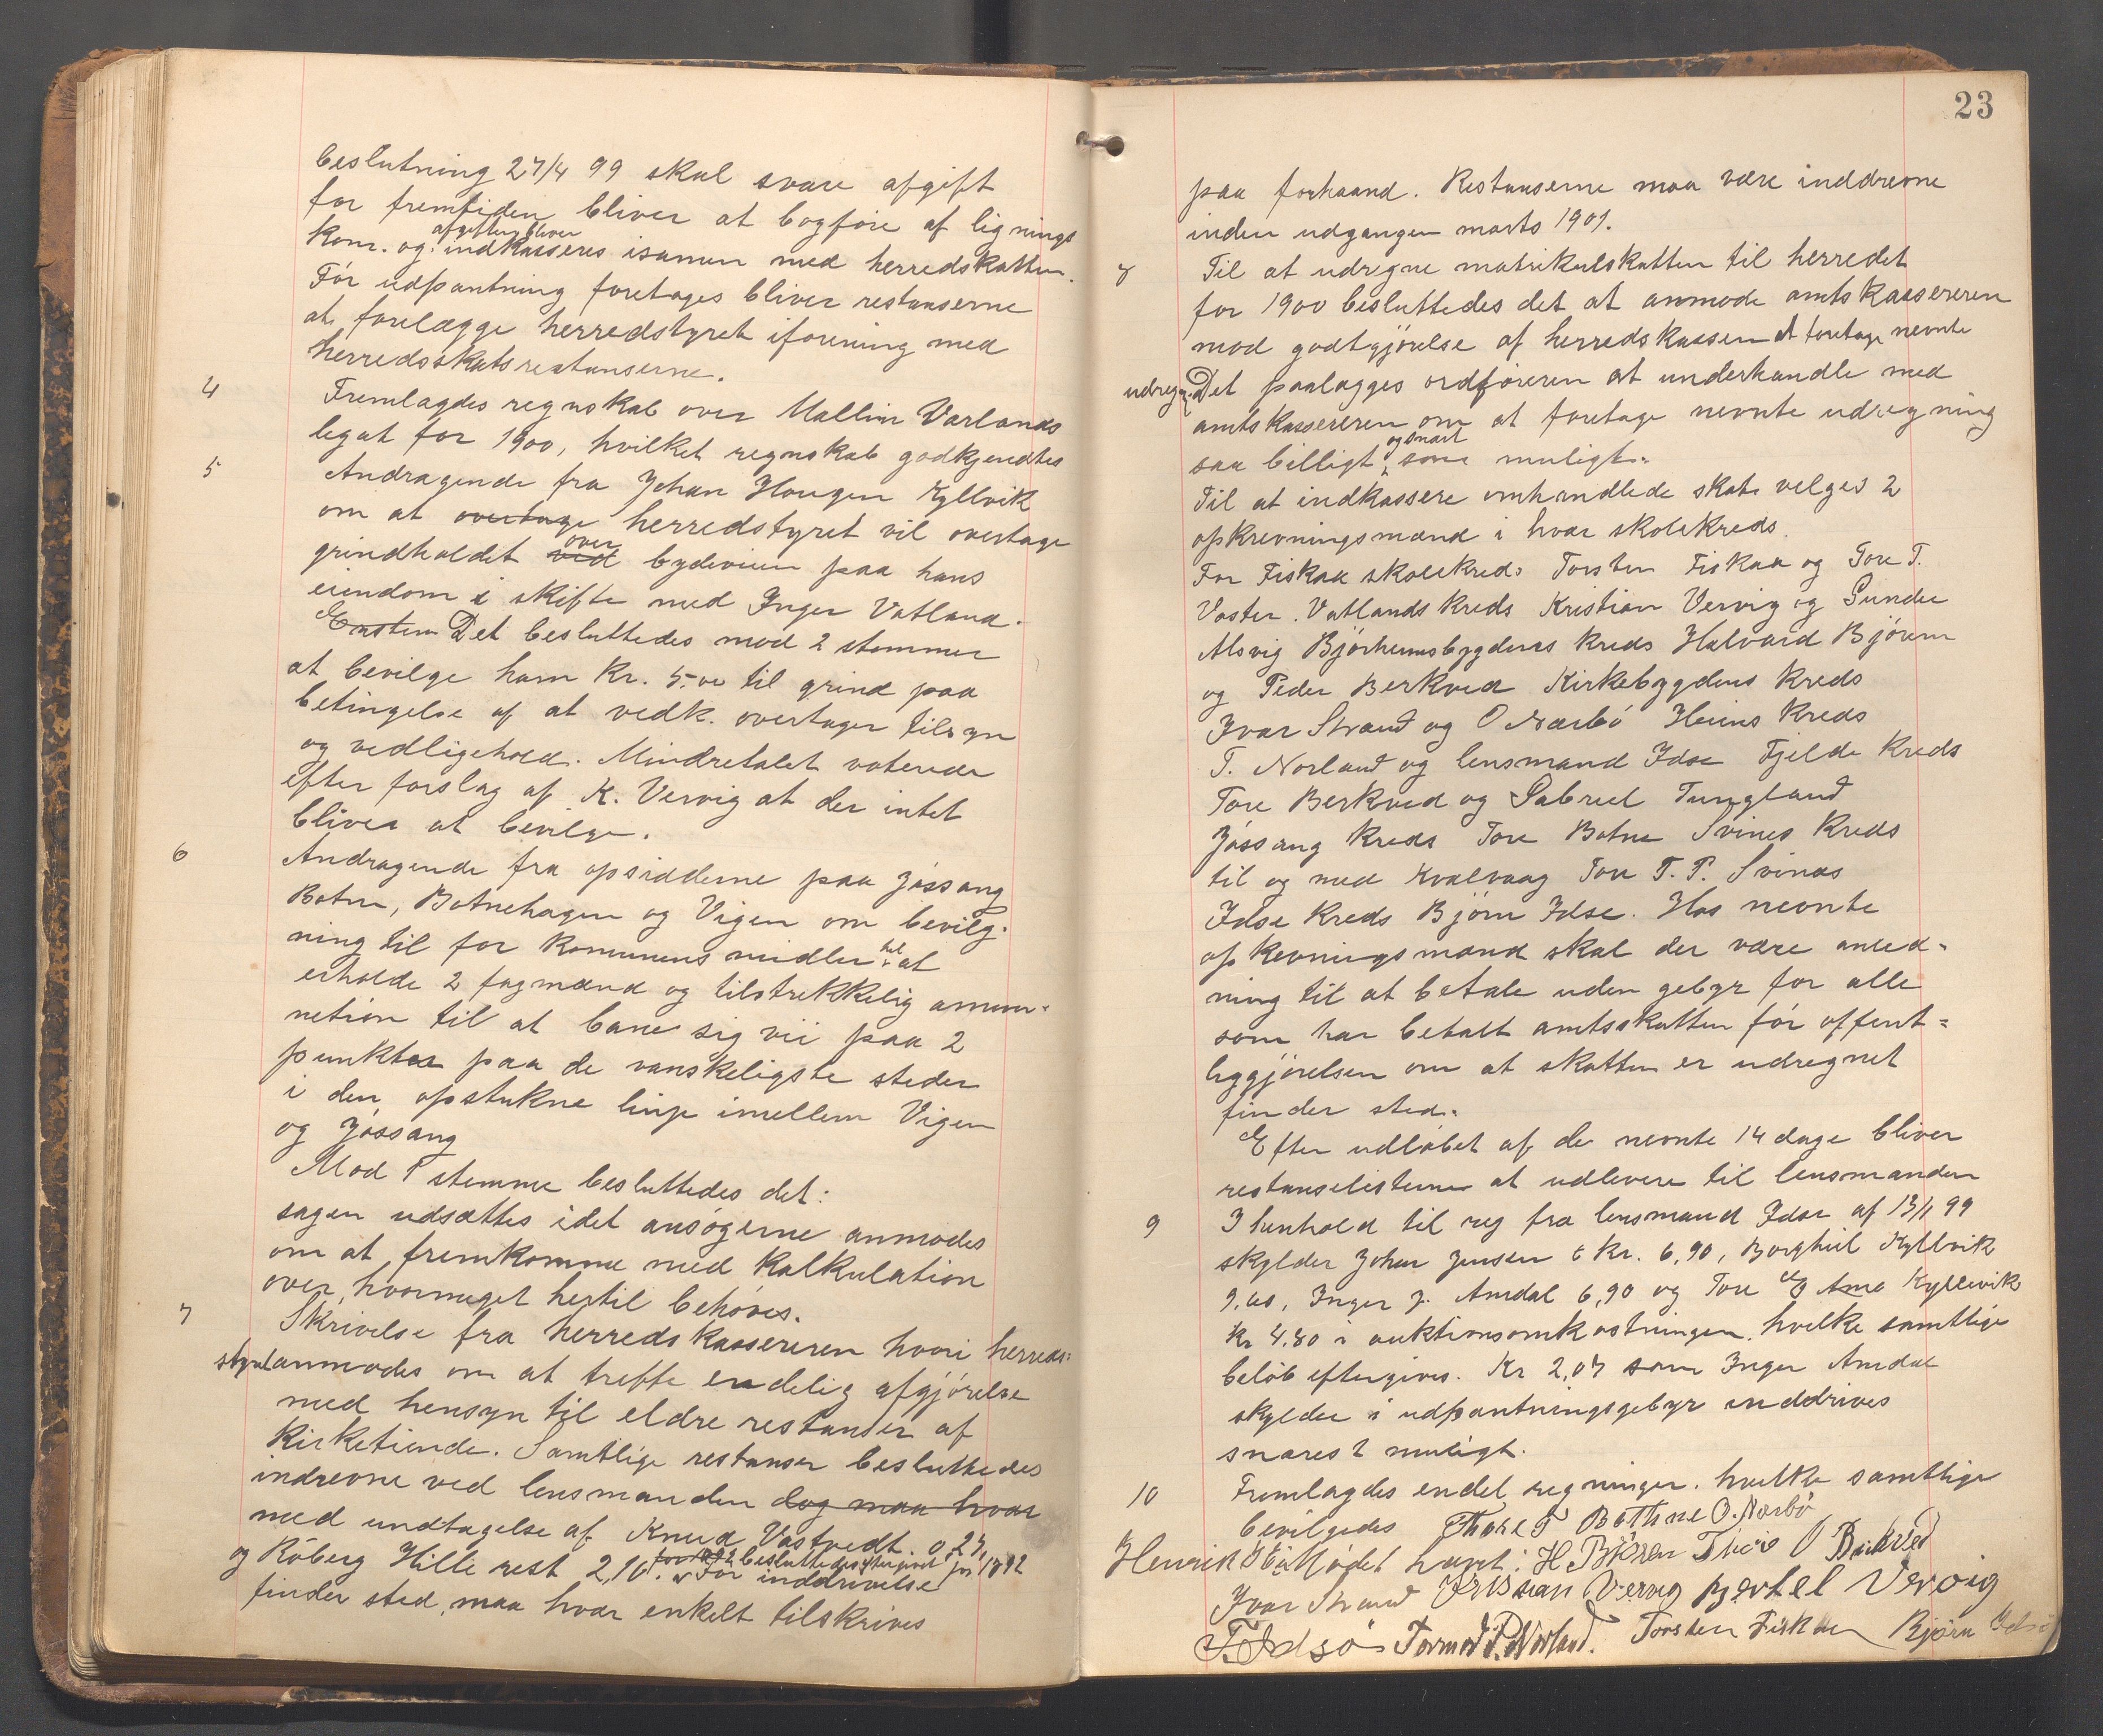 beslutning 27/4 99 skal svare afgift
for fremtiden bliver at bogføre af lignings
kom. og afgiften bliver indkasseres isamen med herredskatten.
Før udpantning foretages bliver restanserne
at forelægge herredstyret iforening med
herredsskatsrestanserne.
4 Fremlagdes regnskab over Mallin Varlands
legat for 1900, hvilket regnskab godkjendtes
5 Andragende fra Johan Haugen Kyllvik
om at overtage herredstyret vil overtage
grindholdet ved over bydeveien paa hans
eiendom i skifte med Inger Vatland.
Ensten Det besluttedes mod 2 stemmer
at bevilge ham Kr. 5.00 til grind paa
betingelse af at vedk. overtager tilsyn
og vedligehold. Mindretalet voterede
efter forslag af K. Vervig at der intet
bliver at bevilge.
6 Andragende fra opsidderne paa Jøssang
Botne, Botnehagen og Vigen om bevilg-
ning til for kommunens midler til at
erholde 2 fagmænd og tilstrekkelig amu-
netion til at bane sig vei paa 2
punkter paa de vanskeligste steder
i den opstukne linje imellem Vigen
og Jøssang
Mod 1 stemme besluttedes det:
sagen udsættes idet ansøgerne anmodes
om at fremkomme med Kalkulation
over, hvormeget hertil behøves.
7 Skrivelse fra herredskassereren hvori herreds-
styret anmodes om at treffe endelig afgjørelse
med hensyn til eldre restanser af
Kirketiende. Samtlige restanser besluttedes
indrevne ved lensmanden dog maa hvar
med undtagelse af Knud Vastvedt. 0,27,
og Røberg Hille rest 2,16. besluttedes eftergivet for 1892
Før inddrivelse
finder sted, maa hvar enkelt tilskrives
23
paa forhaand. Restanserne maa være inddrevne
inden udgangen marts 1901.
8 Til at udregne matrikulskatten til herredet
for 1900 besluttedes det at anmode amtskassereren
mod godtgjørelse af herredskassen at foretage nevnte
udregn. Det paalægges ordføreren at underhandle med
amtskassereren om at foretage nevnte udregning
saa billigt og snart som muligt.
Til at indkassere omhandlede skat velges 2
opkrevningsmænd i hvar skolekreds.
For Fiskaa skolekreds Torsten Fiskaa og Tore T.
Voster. Vatlands kreds Kristian Vervig og Gunder
Alsvig Bjørheimsbygdens kreds Halvard Bjøren
og Peder Berkved Kirkebygdens kreds
Ivar Strand og O Nærbø Heims kreds
T. Norland og lensmand Idse Fjelde kreds
Tore Berkved og Gabriel Tungland
Jøssang kreds Tore Botne Svines kreds
til og med Kvalvaag Tore T. P. Svinæs
Idse kreds Bjørn Idse. Hos nevnte
opkrevningsmænd skal der være anled-
ning til at betale uden gebyr for alle
som har betalt amtsskatten før offent-
liggjørelsen om at skatten er udregnet
finder sted.
Efter udløbet af de nevnte 14 dage bliver
restanselisterne at udlevere til lensmanden
9 I henhold til reg fra lensmand Idse af 13/1 99
skylder Johan Jensen Kr. 6,90, Borghil Kyllvik
9,60, Inger J. Amdal 6,90 og Tore Kyllevik
Kr 4.80 i auktionsomkostninger, hvilke samtlige
beløb eftergives. Kr 2,07 som Inger Amdal
skylder i udpantningsgebyr inddrives
snarest muligt.
10 Fremlagdes endel regninger. hvilke samtlige
bevilgedes Thore T Bothne O. Nærbø
Mødet hævet: H Bjøren Thore O Berkved
Ivar Strand Kristian Vervig Bertel Vervig
T. Idsø Tormod P. Norland. Torsten Fiskaa Bjørn Idsø